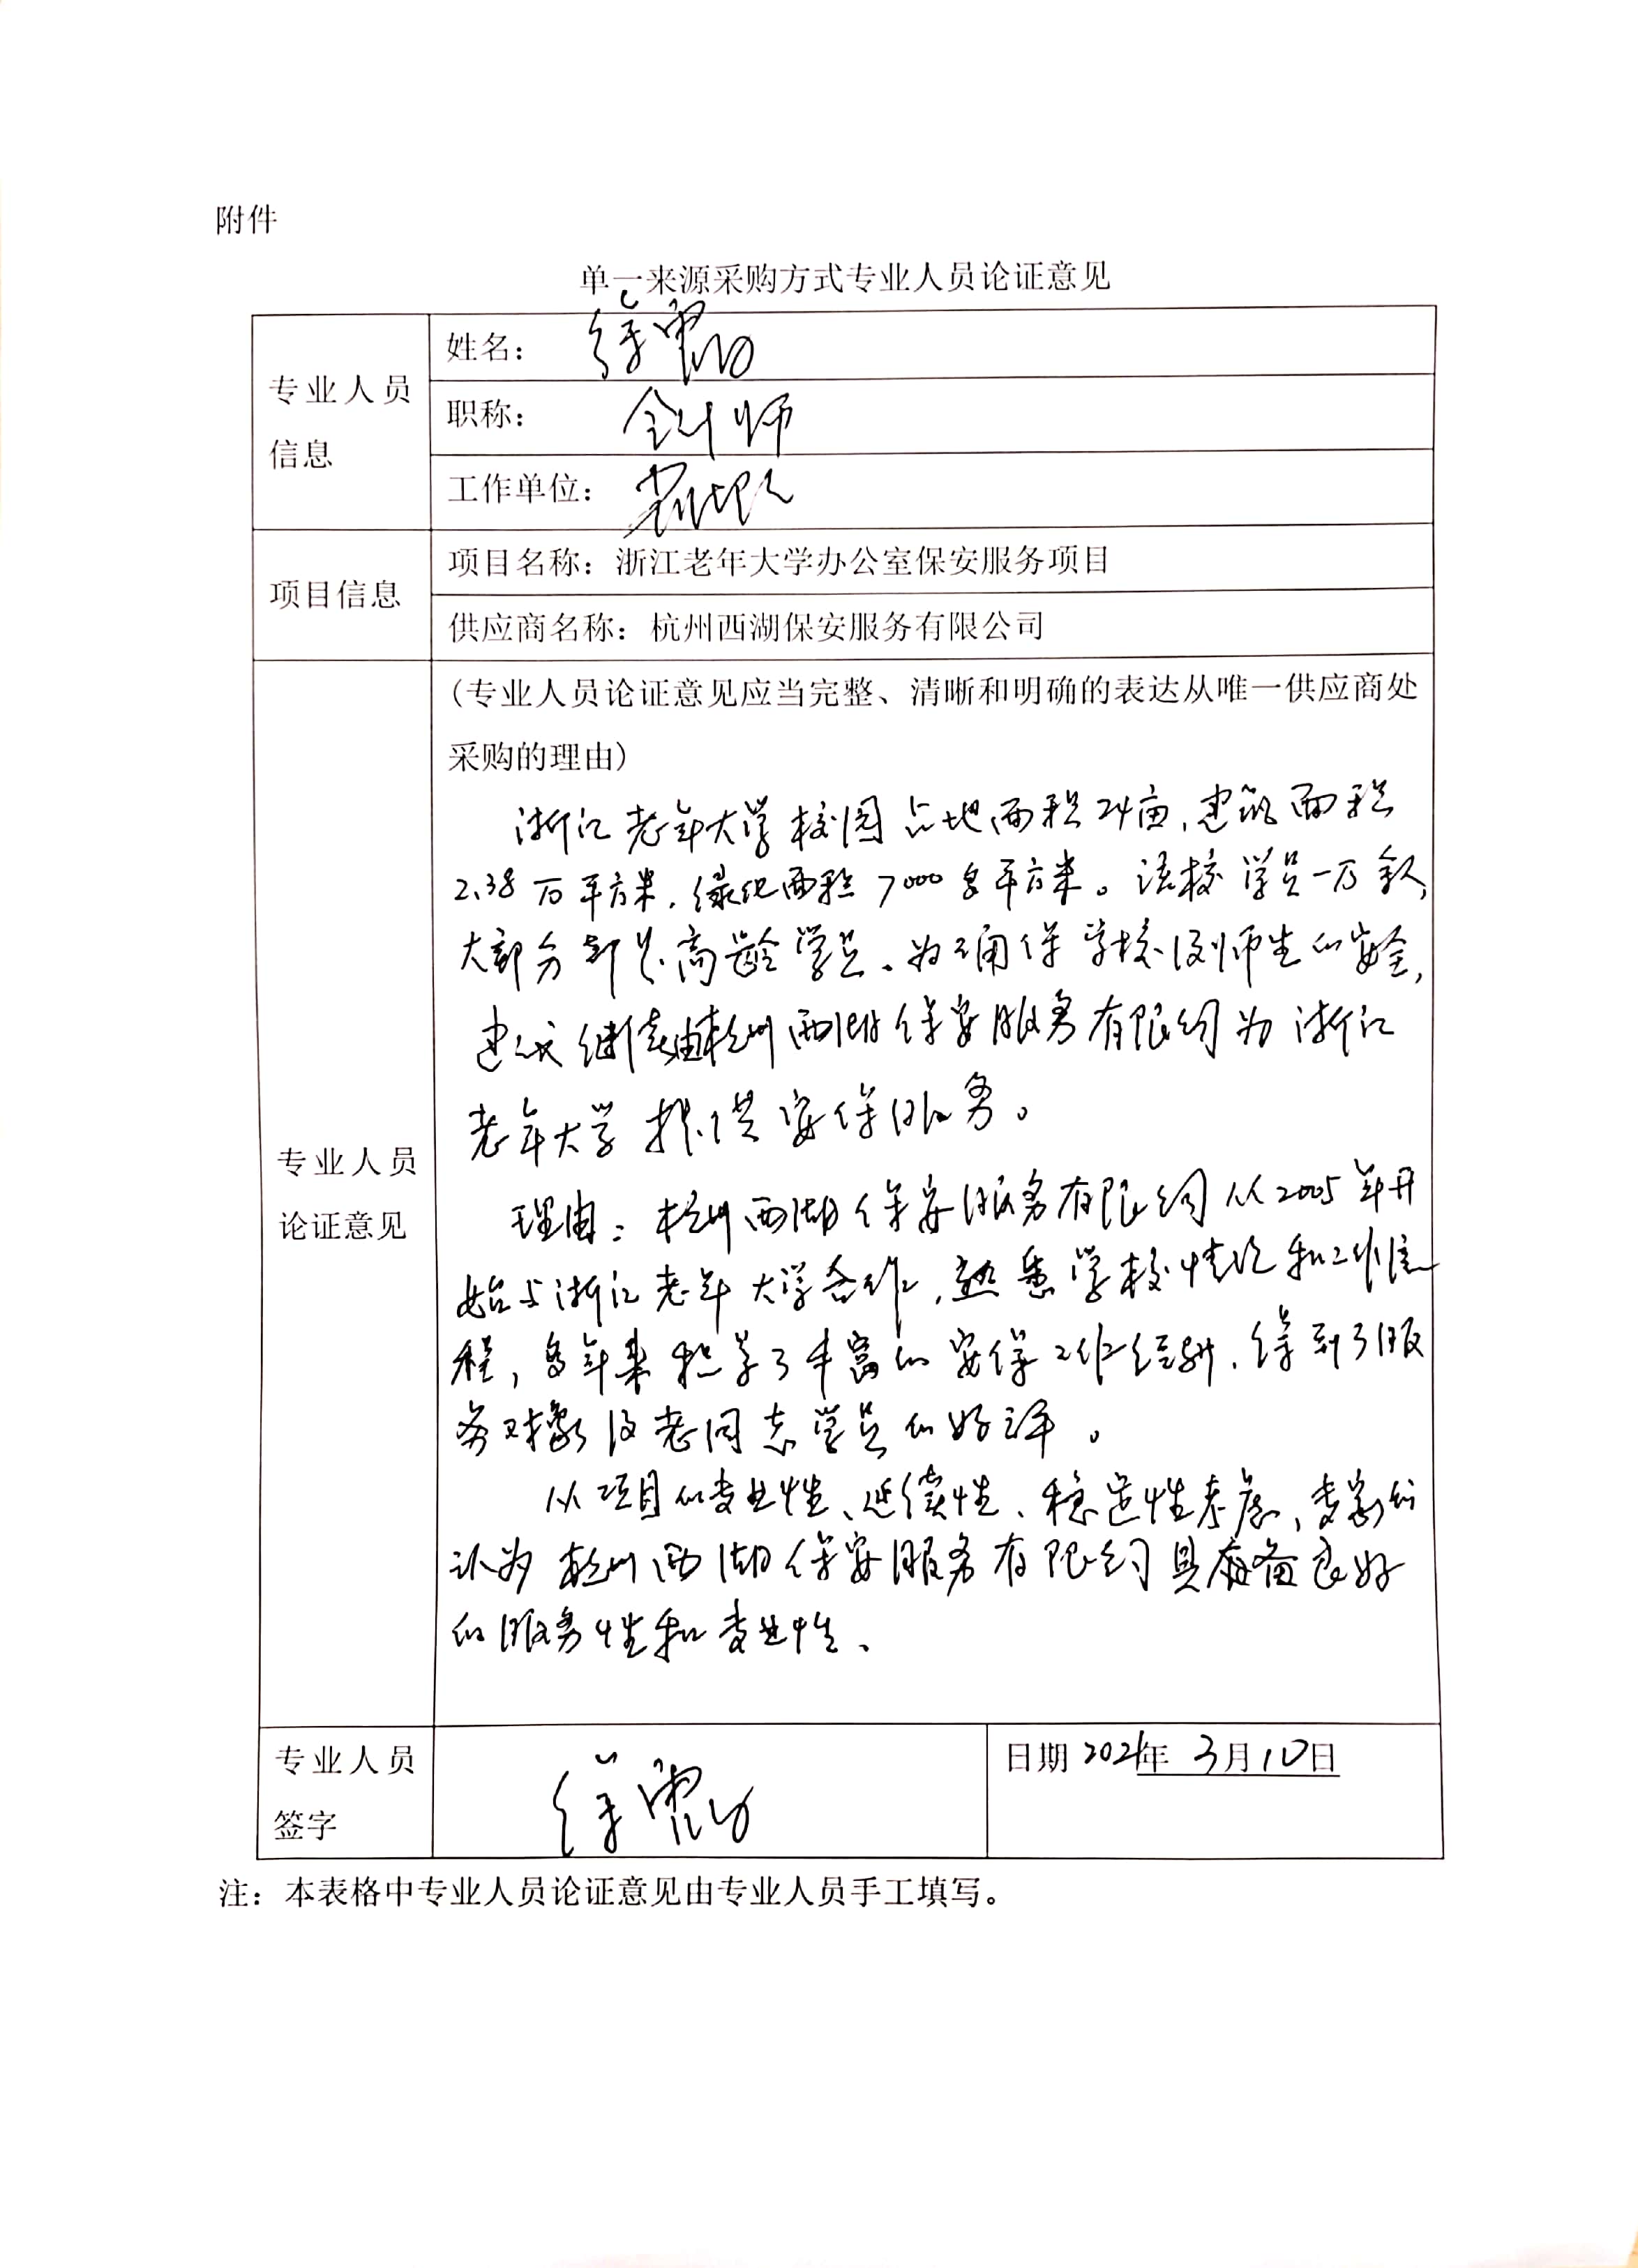 附件
单一来源采购方式专业人员论证意见
专业人员
信息
姓名：
职称： 会计师
工作单位：
项目信息
项目名称：浙江老年大学办公室保安服务项目
供应商名称：杭州西湖保安服务有限公司
专业人员
论证意见
(专业人员论证意见应当完整、清晰和明确的表达从唯一供应商处
采购的理由)
浙江老年大学校园占地面积24亩，建筑面积
2.38万平方米，绿化面积7000多平方米。该校学员一万余人，
大部分都是高龄学员。为确保学校及师生的安全，
建议继续由杭州西湖保安服务有限公司为浙江
老年大学提供安保服务。
理由：杭州西湖保安服务有限公司从2005年开
始与浙江老年大学合作，熟悉学校情况和工作流
程，多年来积累了丰富的安保工作经验，得到了服
务对象及老同志学员的好评。
从项目的专业性、延续性、稳定性考虑，专家们
认为杭州西湖保安服务有限公司具备良好
的服务性和专业性、
专业人员
签字
日期 2021年 3月10日
注：本表格中专业人员论证意见由专业人员手工填写。